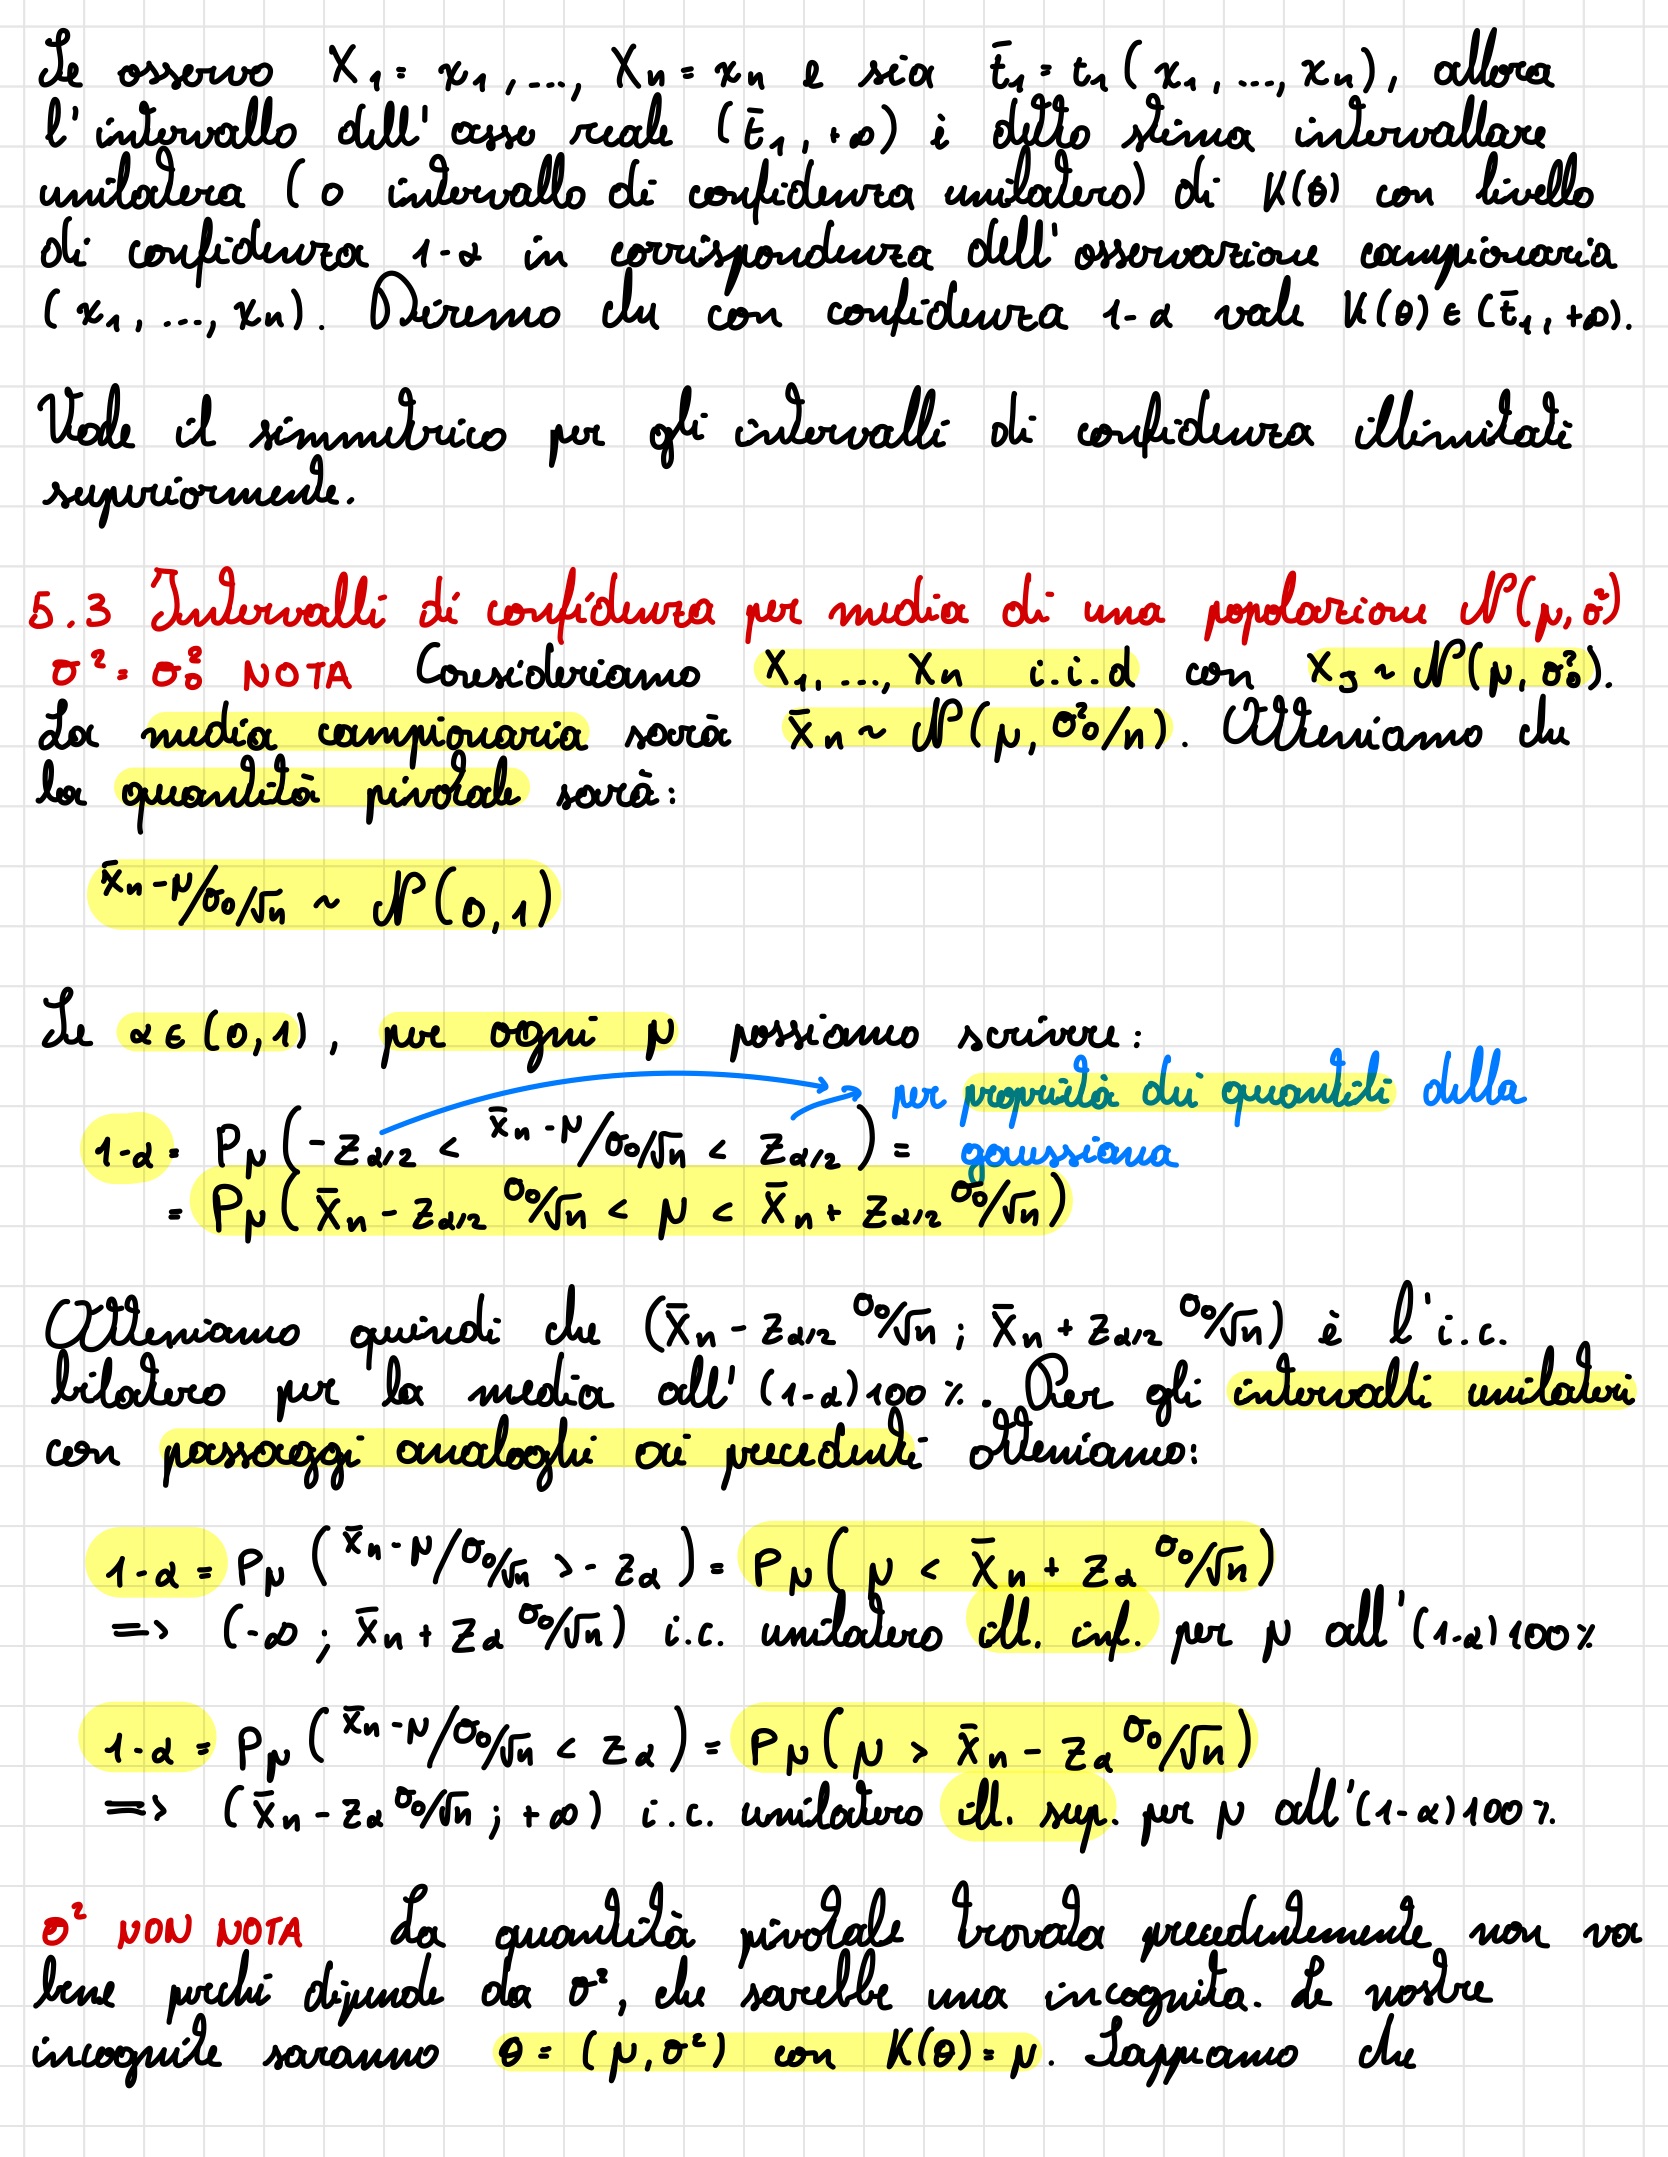 Se osservo X₁ = x₁, ..., Xₙ = xₙ e sia t̄₁ = t₁(x₁, ..., xₙ), allora
l'intervallo dell'asse reale (t̄₁, +∞) è detto stima intervallare
unilatera (o intervallo di confidenza unilatero) di K(θ) con livello
di confidenza 1-α in corrispondenza dell'osservazione campionaria
(x₁, ..., xₙ). Diremo che con confidenza 1-α vale K(θ) ∈ (t̄₁, +∞).
Vale il simmetrico per gli intervalli di confidenza illimitati
superiormente.
5.3 Intervalli di confidenza per media di una popolazione N(μ, σ²)
σ² = σ₀² NOTA Consideriamo X₁, ..., Xₙ i.i.d con XJ ~ N(μ, σ₀²).
La media campionaria sarà X̄ₙ ~ N(μ, σ₀²/n). Otteniamo che
la quantità pivotale sarà:
X̄ₙ - μ/σ₀/√n ~ N(0, 1)
Se α ∈ (0, 1), per ogni μ possiamo scrivere:
per proprietà dei quantili della
1-α = Pμ(-z_α/2 < X̄ₙ - μ/σ₀/√n < z_α/2) = gaussiana
= Pμ(X̄ₙ - z_α/2 σ₀/√n < μ < X̄ₙ + z_α/2 σ₀/√n)
Otteniamo quindi che (X̄ₙ - z_α/2 σ₀/√n ; X̄ₙ + z_α/2 σ₀/√n) è l'i.c.
bilatero per la media all'(1-α)100%. Per gli intervalli unilateri
con passaggi analoghi ai precedenti otteniamo:
1-α = Pμ(X̄ₙ - μ/σ₀/√n > -z_α) = Pμ(μ < X̄ₙ + z_α σ₀/√n)
=> (-∞ ; X̄ₙ + z_α σ₀/√n) i.c. unilatero ill. inf. per μ all'(1-α)100%
1-α = Pμ(X̄ₙ - μ/σ₀/√n < z_α) = Pμ(μ > X̄ₙ - z_α σ₀/√n)
=> (X̄ₙ - z_α σ₀/√n ; +∞) i.c. unilatero ill. sup. per μ all'(1-α)100%
σ² NON NOTA La quantità pivotale trovata precedentemente non va
bene perché dipende da σ², che sarebbe una incognita. Le nostre
incognite saranno θ = (μ, σ²) con K(θ) = μ. Sappiamo che